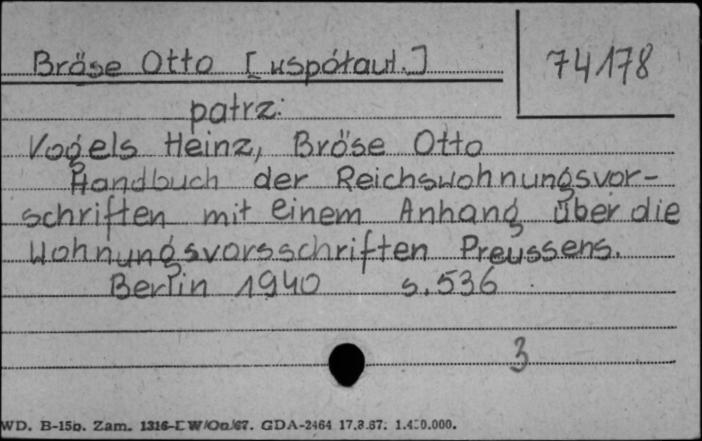 Bröse Otto [współaut.]
74178
patrz:
Vogels Heinz, Bröse Otto
Handbuch der Reichswohnungsvor-
schriften mit einem Anhang über die
Wohnungsvorsschriften Preussens.
Berlin 1940 s. 536
3
WD. B-15b. Zam. 1316-DW/Oa/67. GDA-2464 17.8.67.